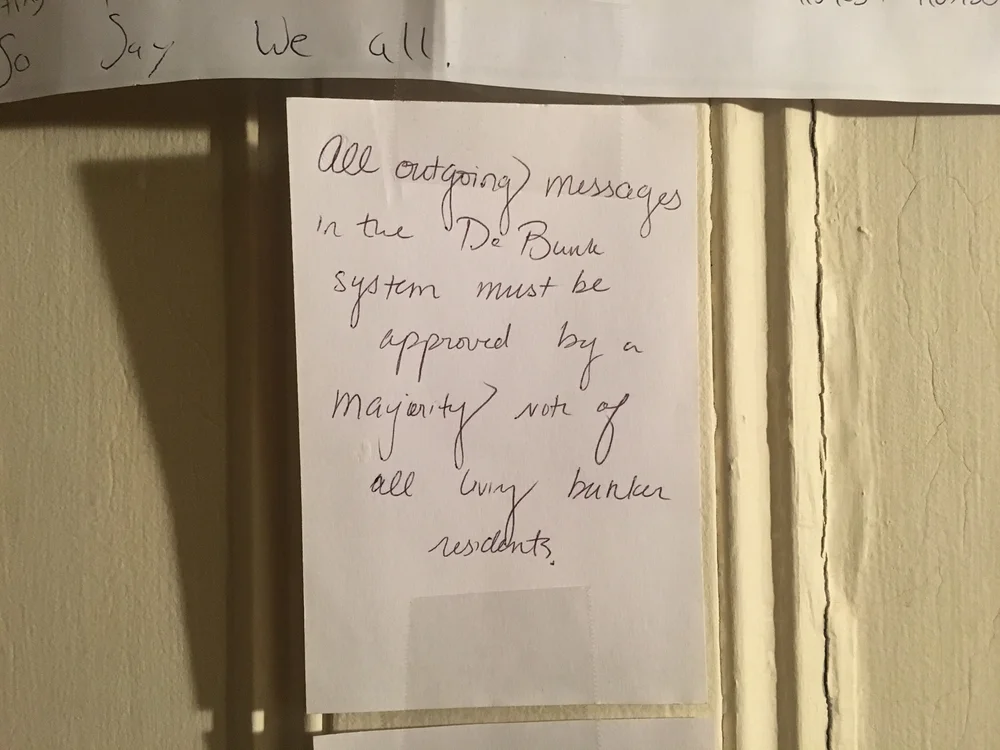 So Say We all.
All outgoing messages
in the De Bunk
system must be
approved by a
majority vote of
all living bunker
residents.